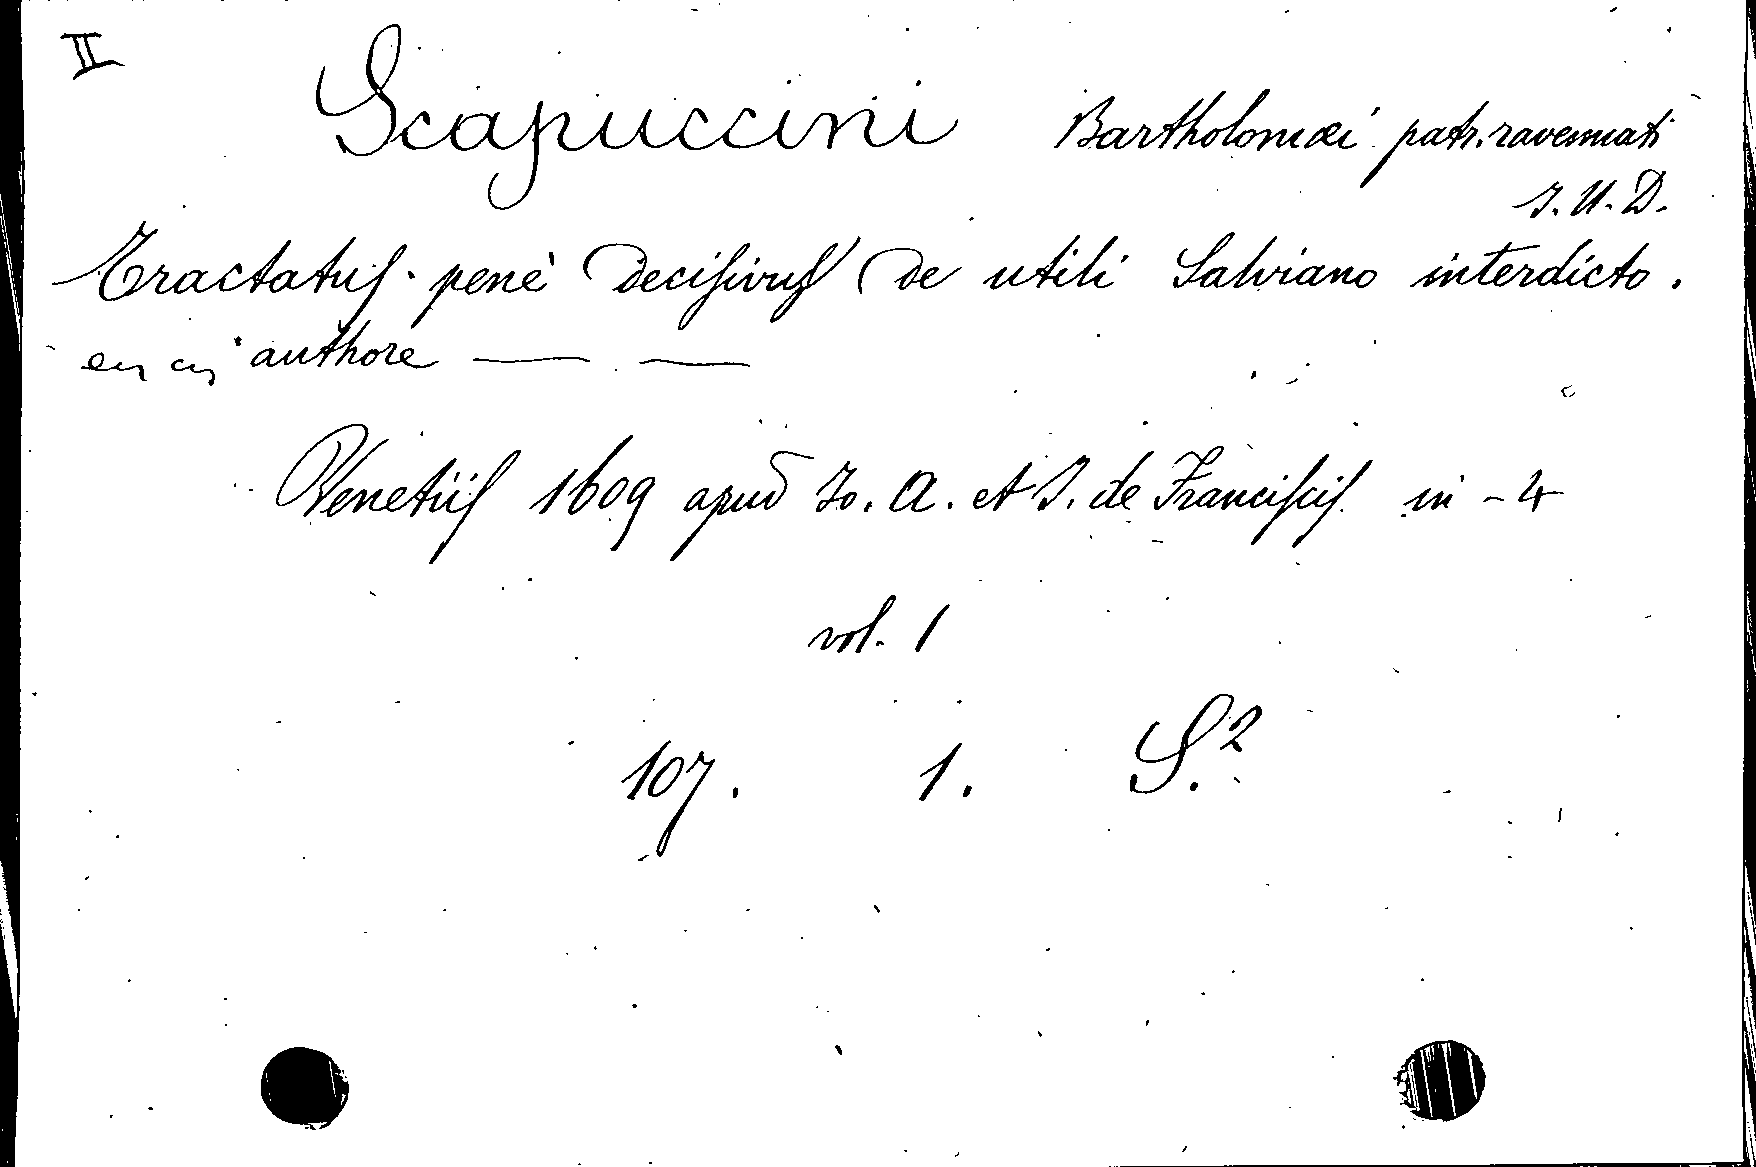 II
Scapuccini Bartholomæi patr. ravennati
J. U. D.
Tractatus penè decisivus de utili Salviano interdicto.
authore — —
Venetiis 1609 apud Io. A. et I. de Franciscis in-4
vol. 1
107. 1. S.2